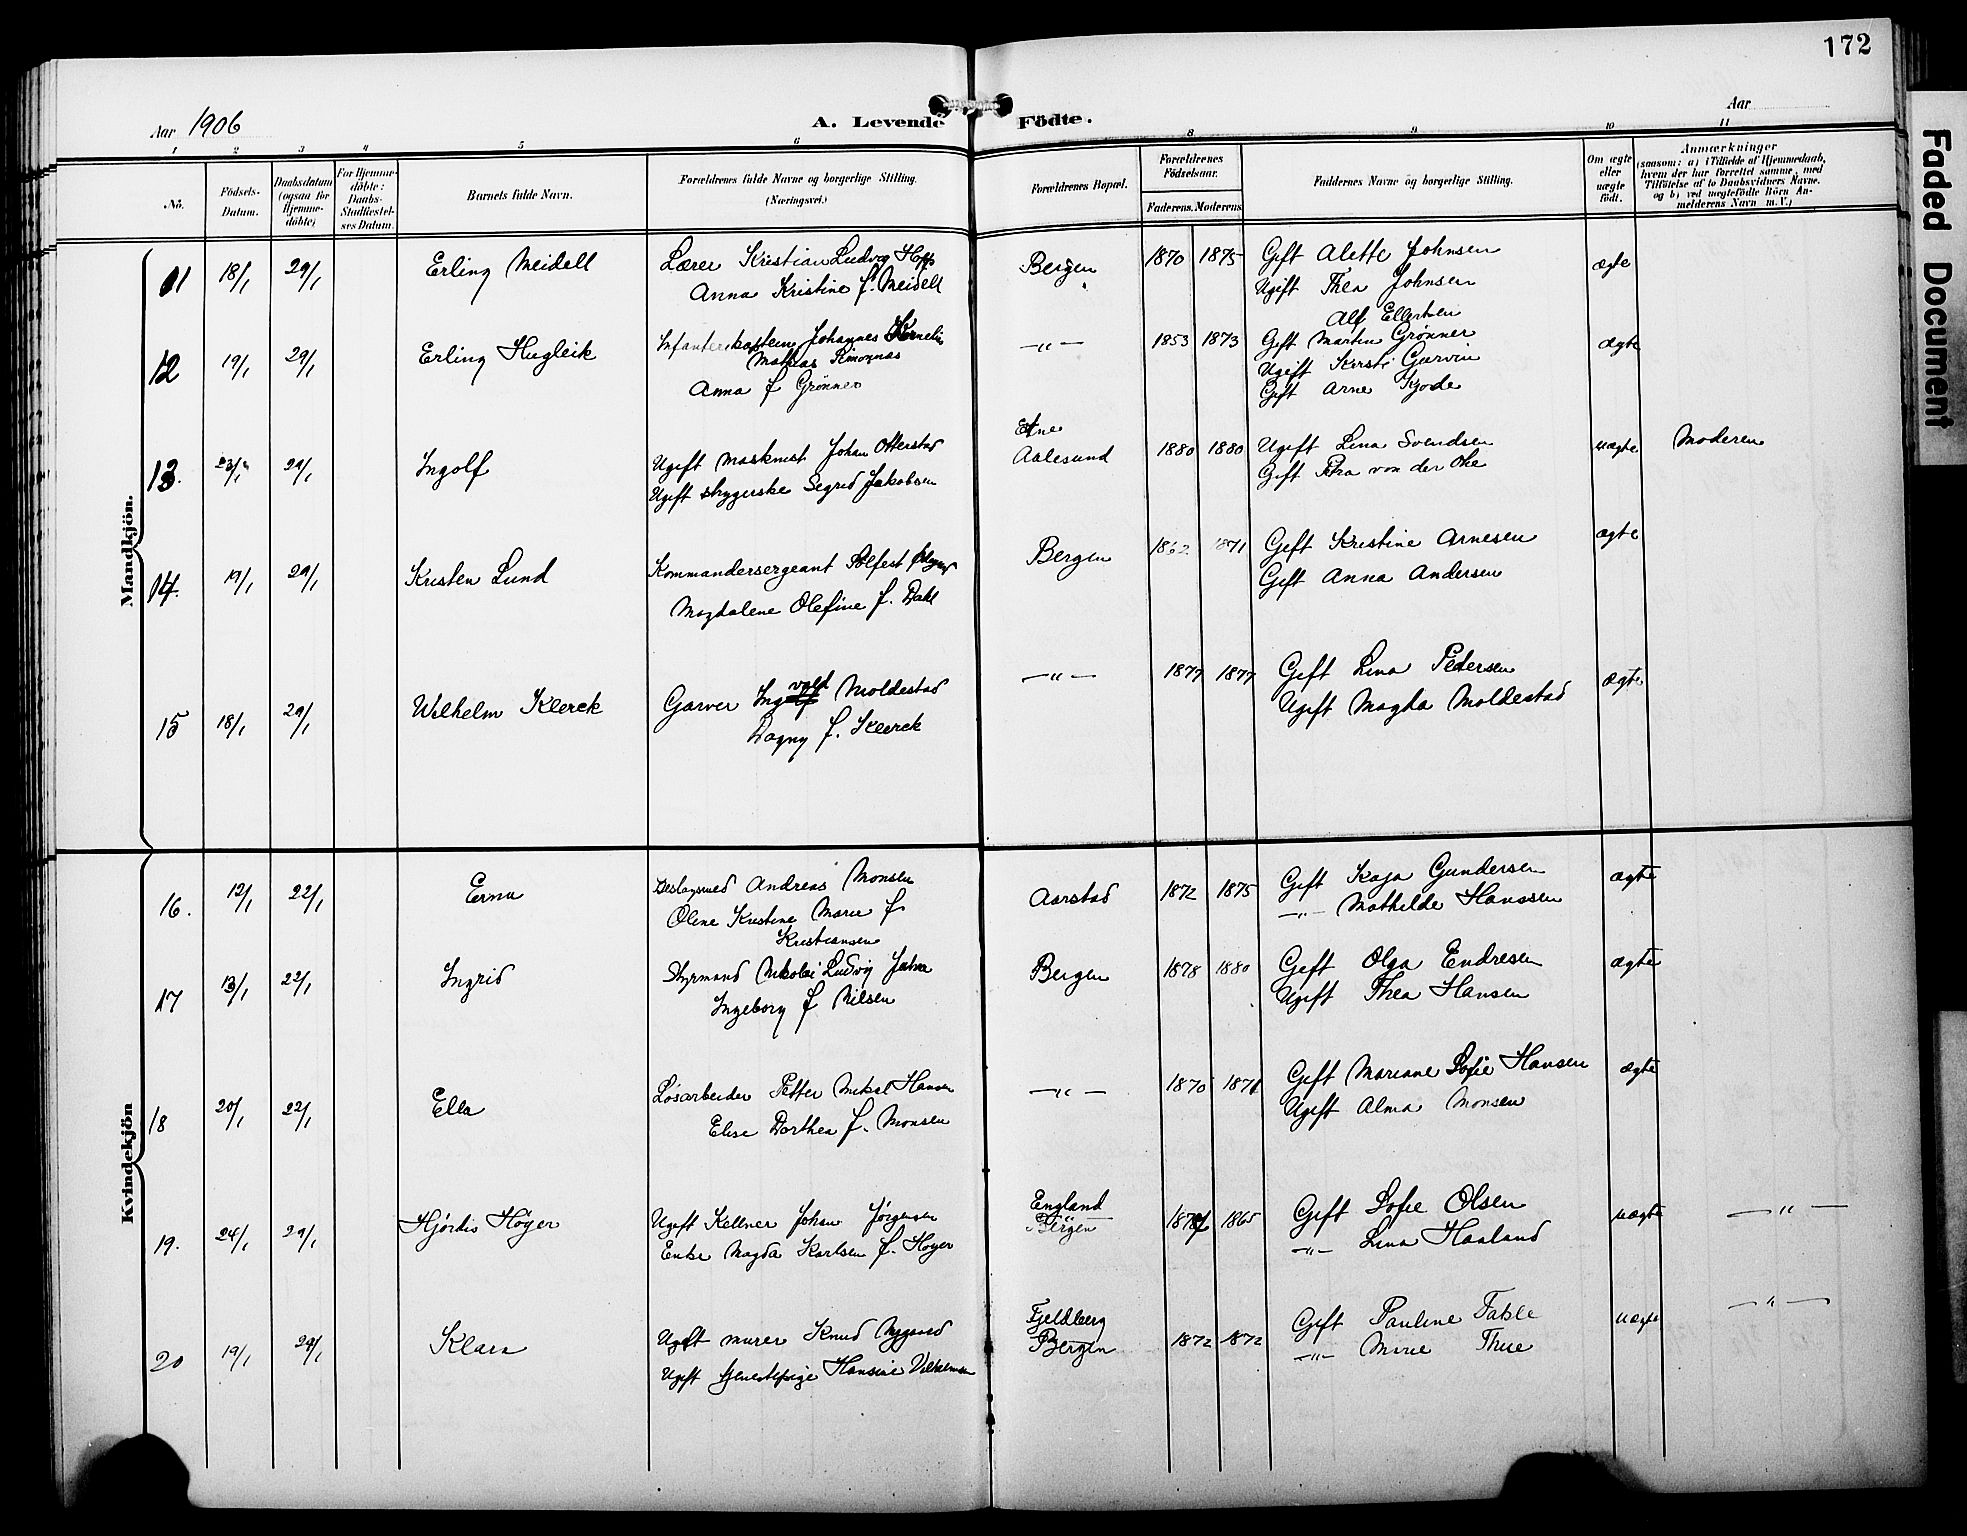 172
Faded Document
Aar 1906
A. Levende Födte.
Aar
1 2 3 4 5 6 8 9 10 11
No.
Födsels-Datum.
Daabsdatum (ogsaa for Hjemme-döbte)
For Hjemme-döbte: Daabs-Stadfæstel-ses Datum.
Barnets fulde Navn.
Forældrenes fulde Navne og borgerlige Stilling. (Næringsvei.)
Forældrenes Bopæl.
Forældrenes Födselsaar.
Faderens. Moderens
Faddernes Navne og borgerlige Stilling.
Om ægte eller uægte födt.
Anmærkninger
(saasom: a) i Tilfælde af Hjemmedaab, hvem der har forrettet samme, med Tilföielse af to Daabsvidners Navne, og b) ved uægtefödte Börn An-melderens Navn m. V.)
Mandkjön.
11 18/1 29/1 Erling Meidell
Lærer Kristian Ludvig Hoff
Anna Kristine f. Meidell
Bergen 1870 1875
Gift Alette Johnsen
Ugift Thea Johnsen
Alf Ellertsen
ægte
12 19/1 29/1 Erling Hugleik
Infanterikaptein Johannes
Mathias
Anna f Grønner
—"— 1853 1873
Gift Martin Grønner
Ugift Kirsti Garvin
Gift Arne Kjode
ægte
13. 23/ 29/1 Ingolf
Ugift Maskinist Johan Otterstad
Ugift strygerske Sigrid Jakobsen
Etne
Aalesund 1880 1880
Ugift Lina Svendsen
Gift Petra von der Ohe
uægte Moderen
14. 19/1 29/1 Kristen Lund
Kommandersergeant Solfest
Magdalene Olefine f. Dahl
Bergen 1871
Gift Kristine Arnesen
Gift Anna Andersen
ægte
15 18/1 29/1 Wilhelm Klerck
Garver Ingvald Moldestad
Dagny f. Klerck
—"— 1877 1877
Gift Lina Pedersen
Ugift Magda Moldestad
ægte
Kvindekjön
16. 12/1 22/1 Erna
Beslagsmed Andreas Monsen
Oline Kristine Marie f
Kristiansen
Aarstad 1872 1875
Gift Kaja Gundersen
—"— Mathilde Hanssen
ægte
17 13/1 22/1 Ingrid
Styrmand Nikolai Ludvig
Ingeborg f Nilsen
Bergen 1878 1880
Gift Olga Endresen
Ugift Thea Hansen
ægte
18 20/1 22/1 Ella
Løsarbeider Petter Mikal Hansen
Elise Dorthea f. Monsen
—"— 1870 1871
Gift Mariane Sofie Hansen
Ugift Alma Monsen
ægte
19. 24/1 29/1 Hjördis Höyer
Ugift Kellner Johan Jørgensen
Enke Magda Karlsen f. Høyer
England
Bergen 1865
Gift Sofie Olsen
—"— Lina Haaland
uægte —"—
20 19/1 29/1 Klara
Ugift murer Knud Nygaard
Ugift tjenestepige Hansine
Fjeldberg
Bergen 1872 1872
Gift Pauline Takle
—"— Marie Thue
uægte —"—